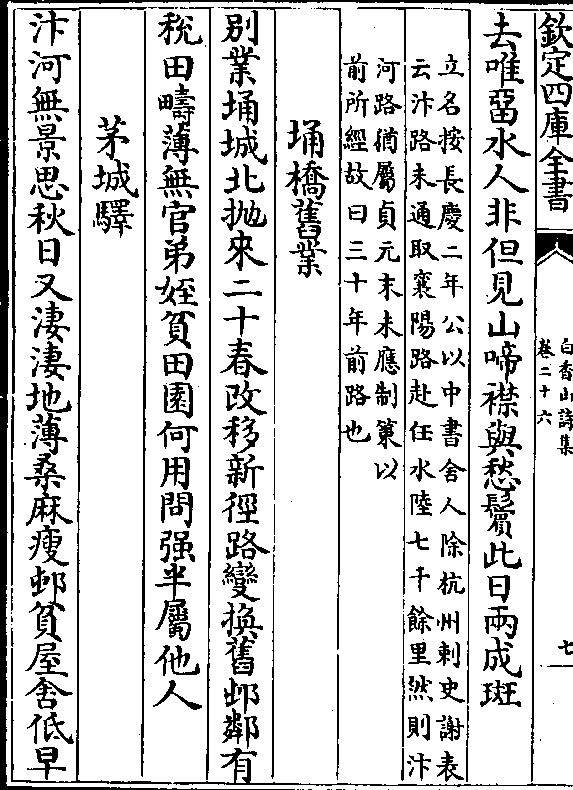 欽定四庫全書
白香山詩集
卷二十六
七
去唯畱水人非但見山啼襟與愁鬢此日兩成斑
立名按長慶二年公以中書舍人除杭州刺史謝表
云汴路未通取襄陽路赴任水陸七千餘里然則汴
河路猶屬貞元末未應制策以
前所經故曰三十年前路也
埇橋舊業
别業埇城北抛來二十春改移新徑路變換舊邨鄰有
税田疇薄無官弟姪貧田園何用問强半屬他人
茅城驛
汴河無景思秋日又淒淒地薄桑麻瘦邨貧屋舍低早